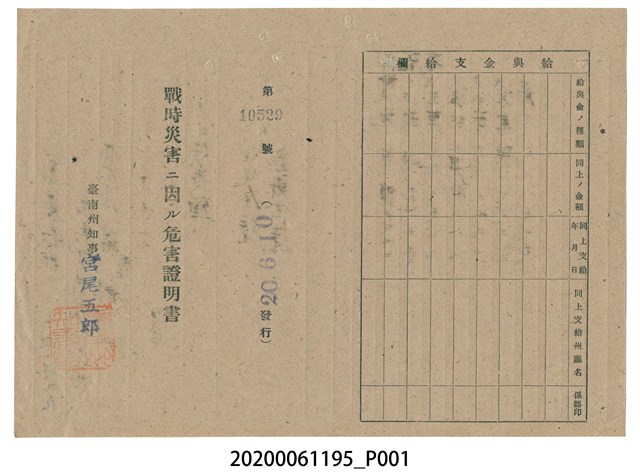 給與金支給欄
給與金ノ種類
同上ノ金額
同上支給年月日
同上支給州廳名
係廳印
第10529號
(20.6.10發行)
戰時災害ニ因ル危害證明書
臺南州知事
宮尾五郎
20200061195_P001